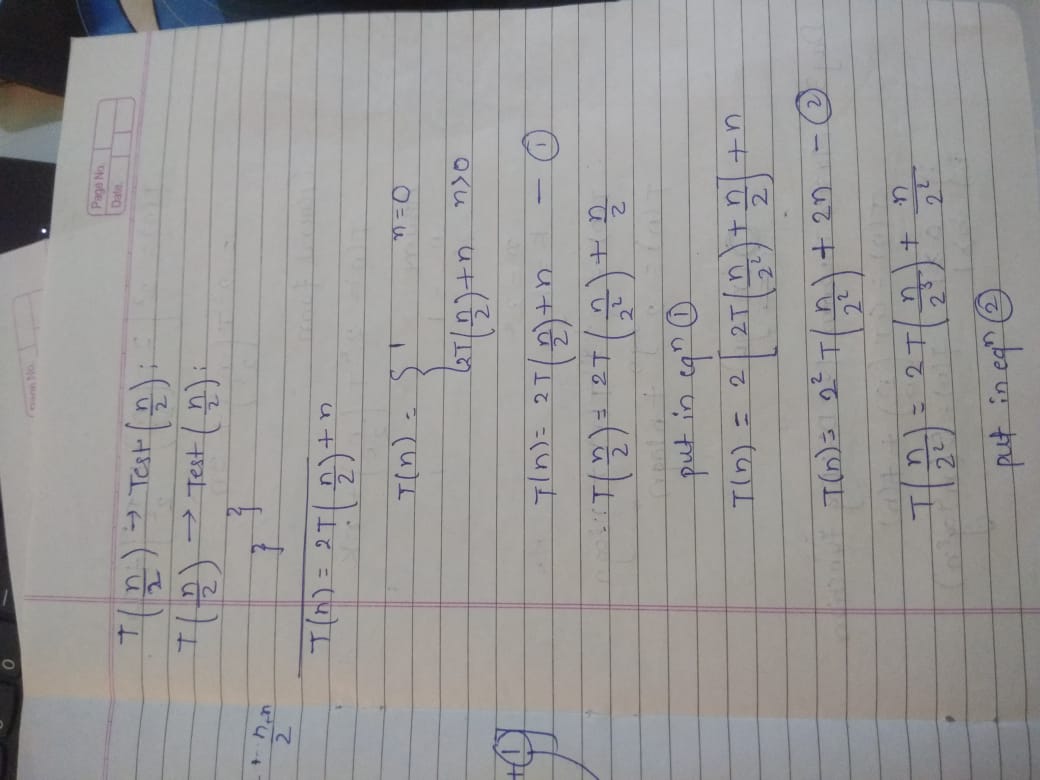 Page No.
Date.
T(n/2) → Test(n/2);
T(n/2) → Test(n/2);
}
}
T(n) = 2T(n/2)+n
T(n) = { 1 n=0
{ 2T(n/2)+n n>0
T(n) = 2T(n/2)+n — ①
T(n/2) = 2T(n/2²) + n/2
put in eqⁿ ①
T(n) = 2[2T(n/2²) + n/2] + n
T(n) = 2² T(n/2²) + 2n — ②
T(n/2²) = 2T(n/2³) + n/2²
put in eqⁿ ②